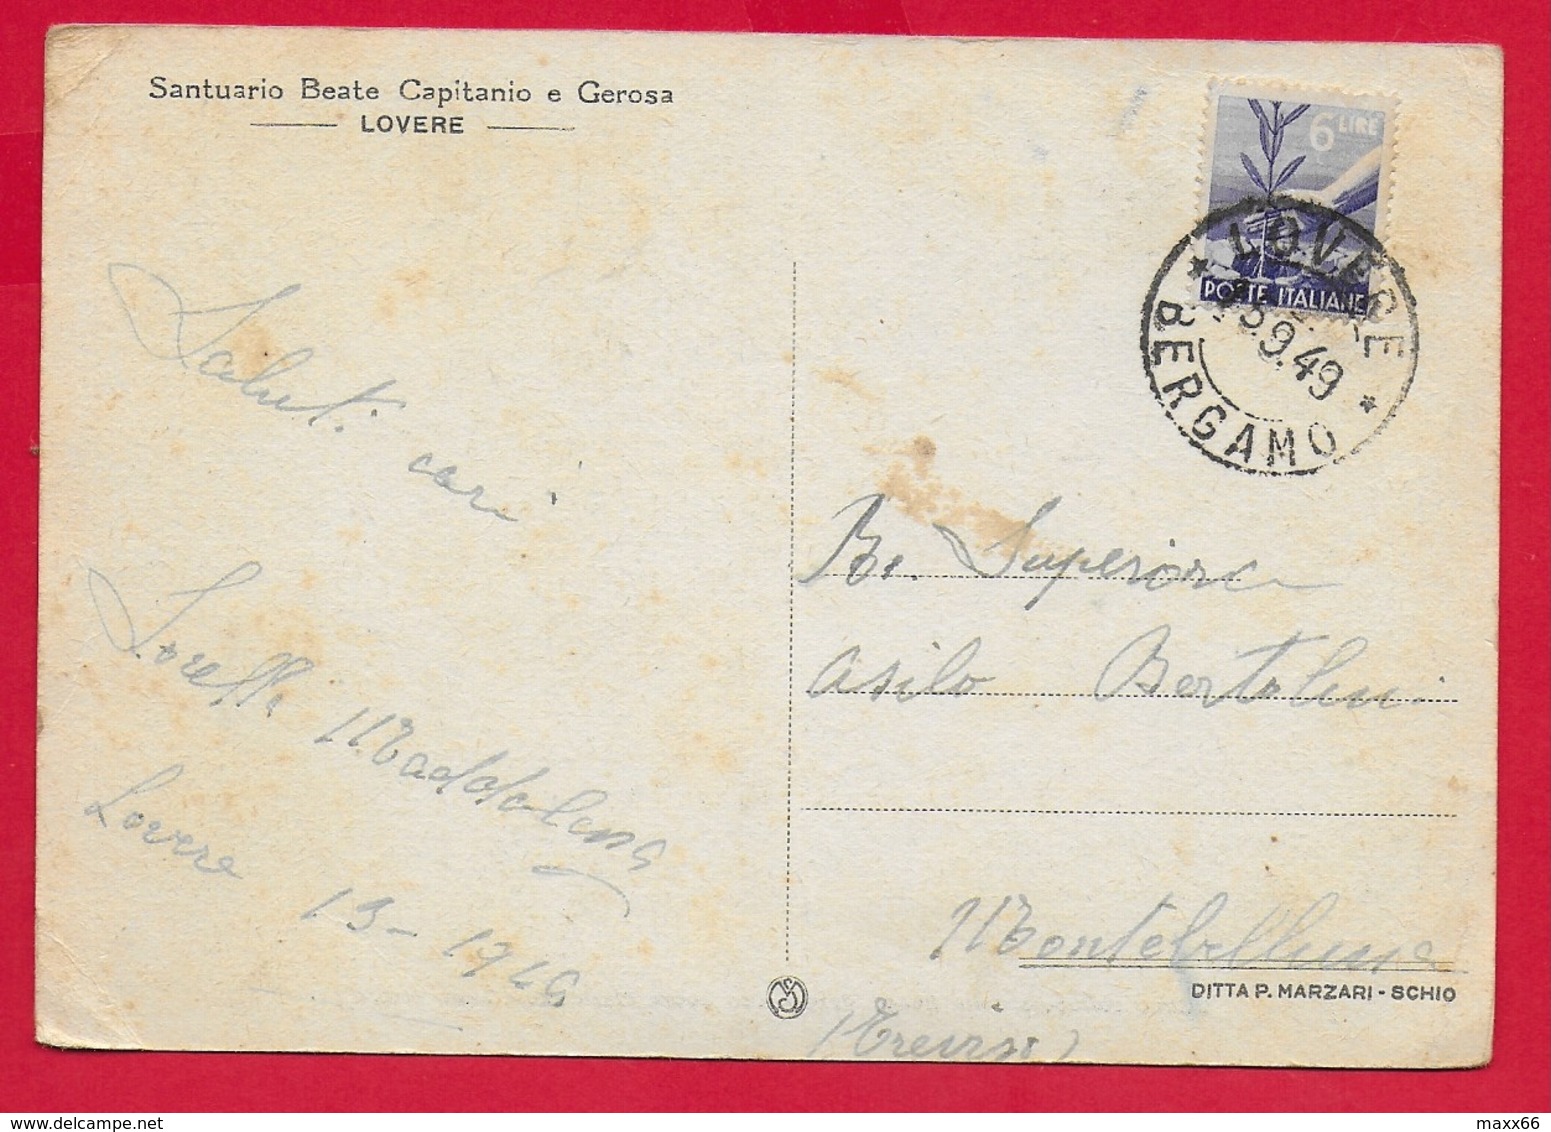 Santuario Beate Capitanio e Gerosa
LOVERE
6 LIRE
POSTE ITALIANE
LOVERE
BERGAMO
9.49
Saluti
cari
Sorella Maddalena
Lovere 13-
Superiora
asilo Bertolini
Montebelluna
(Treviso)
DITTA P. MARZARI - SCHIO
maxx66